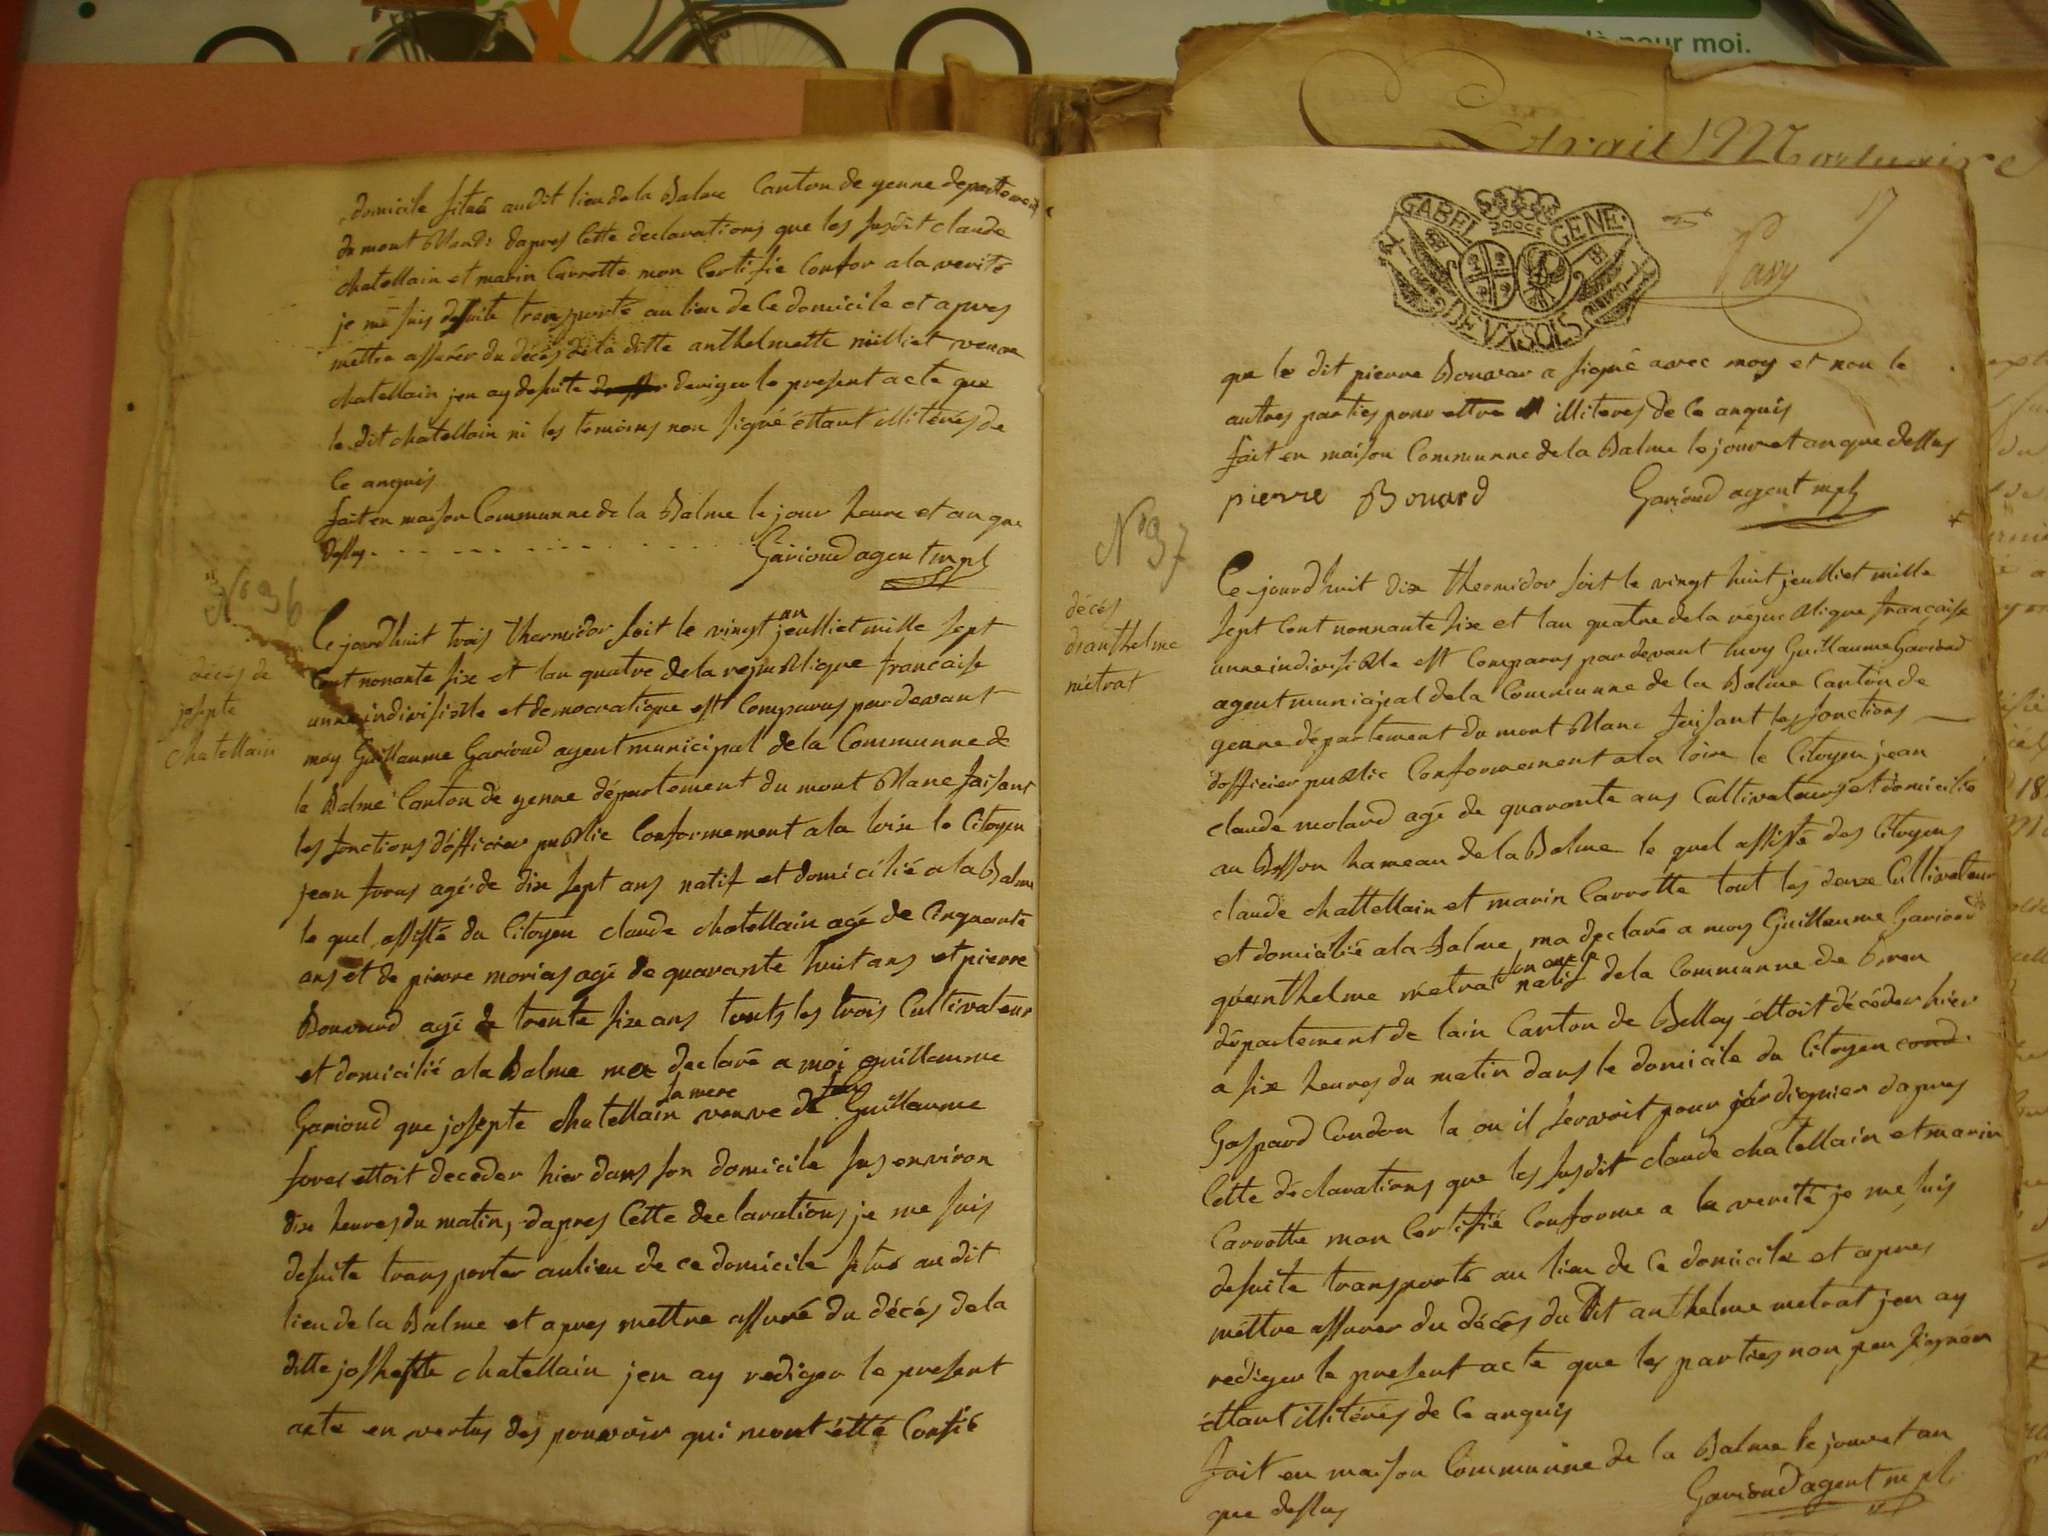 là pour moi.
Extrait Mortuaire
domicile situé audit lieu de la Balme Canton de yenne departement
du mont Blanc dapres Cette declarations que les susdit claude
chatellain et marin Carrotte mon Certifie Confor a la verité
je me suis desuite transporté au lieu de Ce domicile et apres
mettre assurér du décés de la ditte anthelmette milliet veuve
chatellain jen ay desuite derriger le present acte que
le dit chatellain ni les temoins non signé éttant illitérés de
Ce anquis
fait en maison Communne de la Balme le jour heure et an que
dessus
Garioud agent mpl
N° 36
décés de
josepte
chatellain
Ce jourdhuit trois thermidor soit le vingt un jeulliet mille sept
Cent nonante six et lan quatre de la republique francaise
unne indivisible et democratique est Comparus pardevant
moy Guillaume Garioud agent municipal de la Communne de
la Balme Canton de yenne département du mont Blanc faisant
les fonctions dofficier public Conformement a la loix le Citoyen
jean foras agé de dix sept ans natif et domicilié a la Balme
le quel assisté du Citoyen claude chatellain agé de Cinquante
ans et de pierre morias agé de quarante huit ans et pierre
Bouvard agé de trente six ans touts les trois Cultivateur
et domicilié a la Balme ma declaré a moi guillaume
Garioud que josepte chatellain sa mere veuve de Guillaume
foras ettoit deceder hier dans son domicile sus environ
dix heures du matin, dapres Cette declarations je me suis
desuite transporter au lieu de ce domicile situé au dit
lieu de la Balme et apres mettre assuré du décés de la
ditte josepte chatellain jen ay rediger le present
acte en vertus des pouvoir qui mont étté Confié
GABEL GENE
DEVX SOLS
17
Pavy
que le dit pierre Bouvar a signé avec moy et non le
autres parties pour ettre illiteres de Ce anquis
fait en maison Communne de la Balme le jour et an que dessus
pierre Bouvard
Garioud agent mpl
N° 37
décés
dianthelme
métrat
Ce jourdhuit dix thermidor soit le vingt huit jeulliet mille
sept Cent nonnante six et lan quatre de la republique francaise
unne indivisible est Comparus pardevant moy Guillaume Garioud
agent municipal de la Communne de la Balme Canton de
yenne département du mont Blanc faisant les fonctions
dofficier public Conformement a la loix le Citoyen jean
claude molard agé de quarante ans Cultivateurs et domicilié
au Besson hameau de la Balme le quel assisté des Citoyens
claude chattellain et marin Carrotte tout les deux Cultivateur
et domicilié a la Balme ma declaré a moy Guillaume Garioud
quanthelme métrat son oncle natif de la Communne de
département de lain Canton de Belley éttoit décéder hier
a six heures du matin dans le domicile du Citoyen
Gaspard Condon la ou il servoit pour járdignier dapres
Cette déclarations que les susdit claude chatellain et marin
Carrotte mon Certifié Conforme a la verité je me suis
desuite transporté au lieu de Ce domicile et apres
méttre assurer du décés du Dit anthelme metrat jen ay
rediger le present acte que les parties non peu signér
éttant illitérés de Ce anquis
fait en maison Communne de la Balme le jour et an
que dessus
Garioud agent mpl